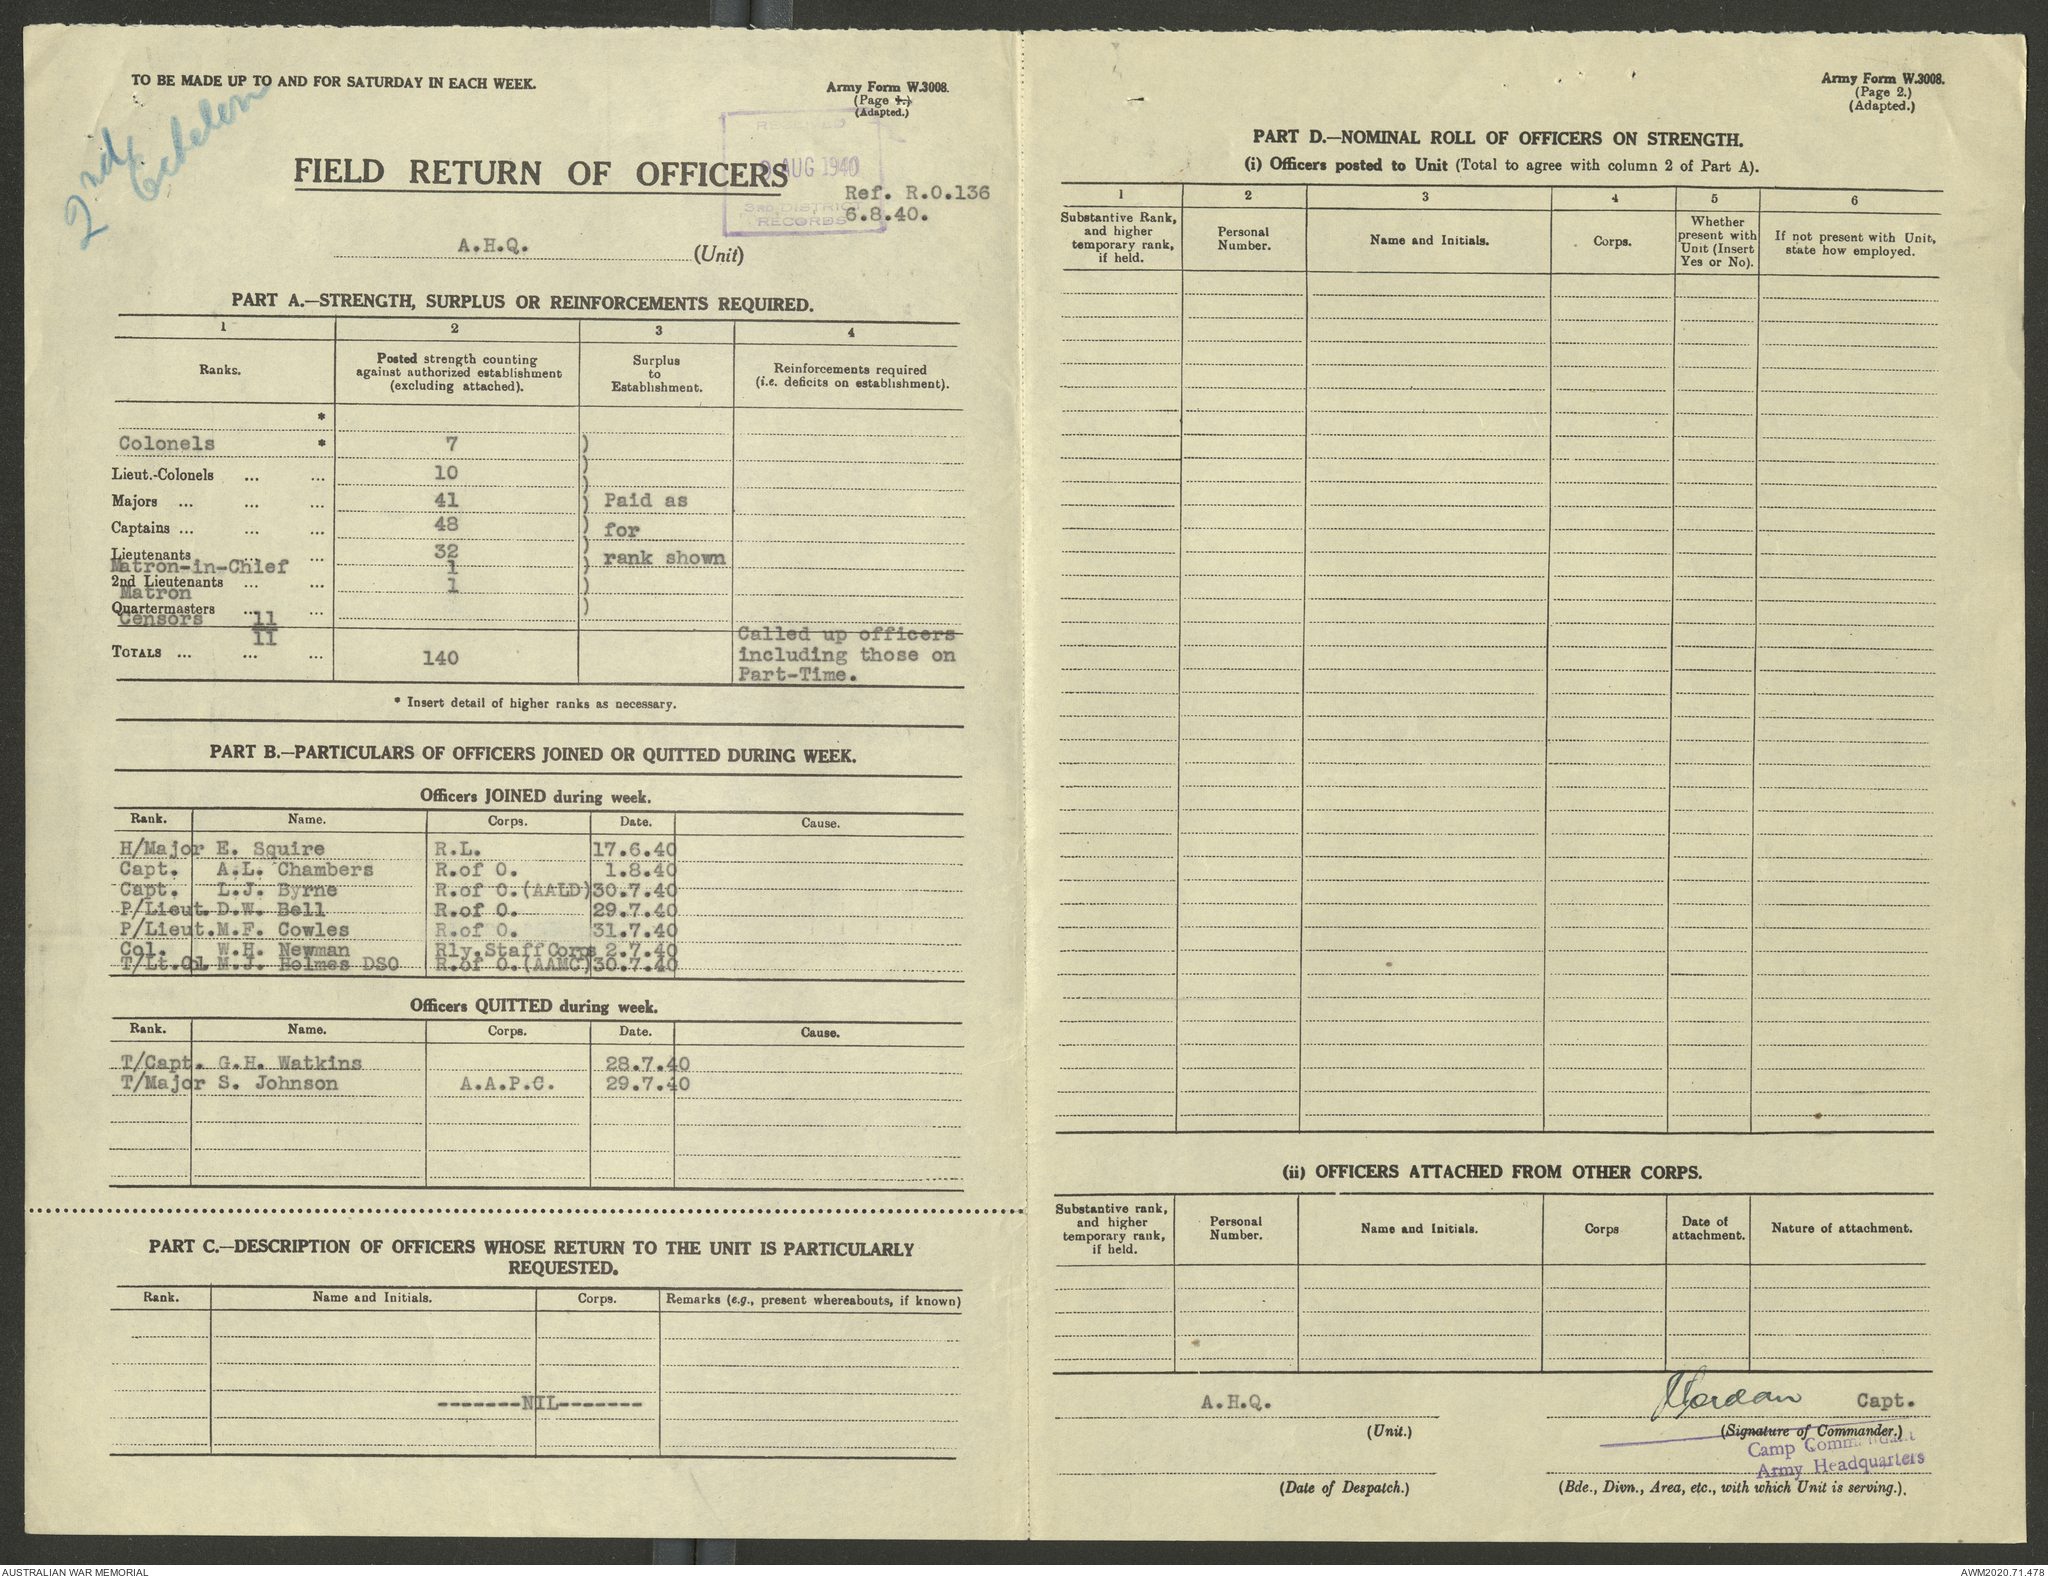 TO BE MADE UP TO AND FOR SATURDAY IN EACH WEEK.
Army Form W.3008.
(Page 1.)
(Adapted.)
2nd Echelon
RECEIVED
AUG 1940
3RD DISTRICT
RECORDS
FIELD RETURN OF OFFICERS
Ref. R.O.136
6.8.40.
A.H.Q. (Unit)
PART A.—STRENGTH, SURPLUS OR REINFORCEMENTS REQUIRED.
1 2 3 4
Ranks. Posted strength counting against authorized establishment (excluding attached). Surplus to Establishment. Reinforcements required (i.e. deficits on establishment).
*
Colonels * 7 )
)
Lieut.-Colonels ... ... 10 )
Majors ... ... ... 41 ) Paid as
Captains ... ... ... 48 ) for
Lieutenants ... ... 32 )
Matron-in-Chief 1 ) rank shown
2nd Lieutenants ... ... 1 )
Matron
Quartermasters ... ... )
Censors 11
11 Called up officers
TOTALS ... ... ... 140 including those on
Part-Time.
* Insert detail of higher ranks as necessary.
PART B.—PARTICULARS OF OFFICERS JOINED OR QUITTED DURING WEEK.
Officers JOINED during week.
Rank. Name. Corps. Date. Cause.
H/Major E. Squire R.L. 17.6.40
Capt. A.L. Chambers R.of O. 1.8.40
Capt. L.J. Byrne R.of O.(AALD) 30.7.40
P/Lieut. D.W. Bell R.of O. 29.7.40
P/Lieut. M.F. Cowles R.of O. 31.7.40
Col. W.H. Newman Rly.Staff Corps 2.7.40
T/Lt.Col M.J. Holmes DSO R.of O.(AAMC) 30.7.40
Officers QUITTED during week.
Rank. Name. Corps. Date. Cause.
T/Capt. G.H. Watkins 28.7.40
T/Major S. Johnson A.A.P.C. 29.7.40
PART C.—DESCRIPTION OF OFFICERS WHOSE RETURN TO THE UNIT IS PARTICULARLY
REQUESTED.
Rank. Name and Initials. Corps. Remarks (e.g., present whereabouts, if known)
-------NIL-------
Army Form W.3008.
(Page 2.)
(Adapted.)
PART D.—NOMINAL ROLL OF OFFICERS ON STRENGTH.
(i) Officers posted to Unit (Total to agree with column 2 of Part A).
1 2 3 4 5 6
Substantive Rank, and higher temporary rank, if held. Personal Number. Name and Initials. Corps. Whether present with Unit (Insert Yes or No). If not present with Unit, state how employed.
(ii) OFFICERS ATTACHED FROM OTHER CORPS.
Substantive rank, and higher temporary rank, if held. Personal Number. Name and Initials. Corps Date of attachment. Nature of attachment.
A.H.Q. Capt.
(Unit.) (Signature of Commander.)
Camp Commandant
Army Headquarters
(Date of Despatch.) (Bde., Divn., Area, etc., with which Unit is serving.).
AUSTRALIAN WAR MEMORIAL
AWM2020.71.478